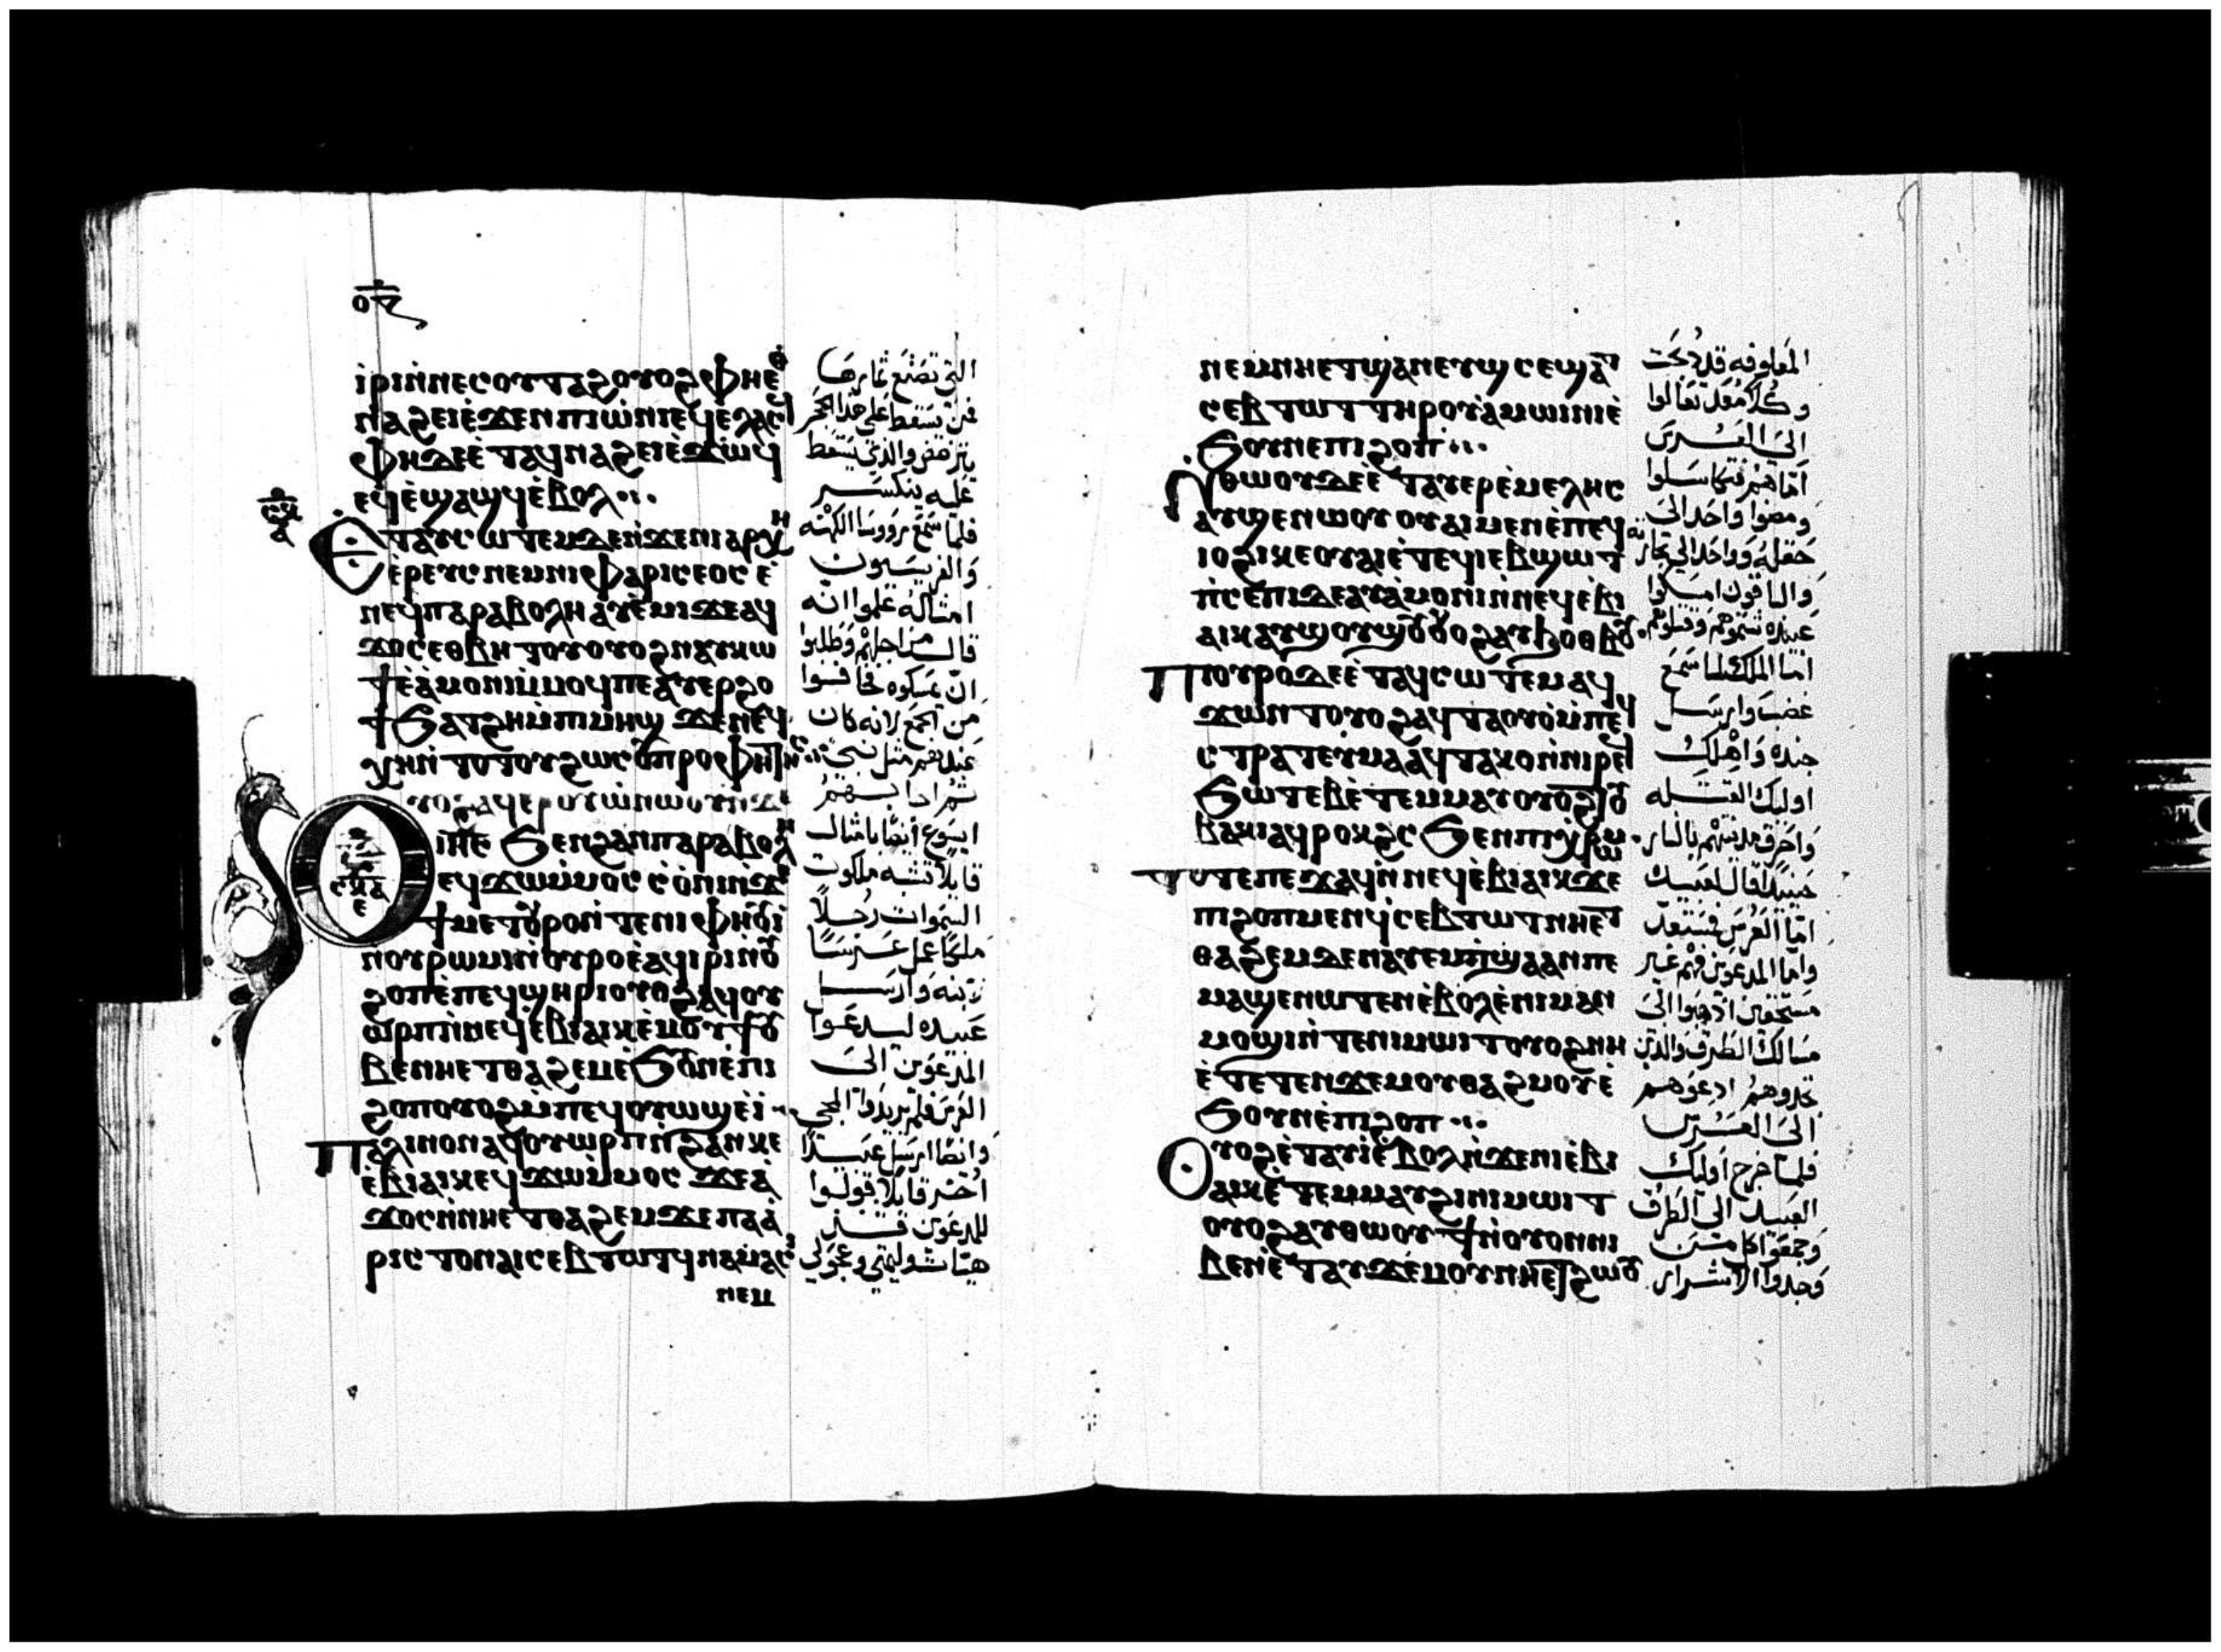 ⲟⲋ
ⲓⲣⲓⲛ̀ⲛⲉⲥⲟⲩⲧⲁϩⲟⲩⲟϩⲫⲏⲉⲑ
ⲛⲁϩⲉⲓⲉ̀ϫⲉⲛⲡⲓⲱ̀ⲛⲓⲉϥⲉ̀ⲗⲁⲥ
ⲫⲏⲇⲉⲉ̀ⲧⲁϥⲛⲁϩⲉⲓⲉ̀ϫⲱϥ
ⲉϥⲉ̀ϣⲁϣϥⲉ̀ⲃⲟⲗ
ⲉⲧⲁⲩⲥⲱⲧⲉⲙⲇⲉⲛ̀ϫⲉⲛⲓⲁⲣⲭⲏ
ⲉ̀ⲣⲉⲩⲥⲛⲉⲙⲛⲓⲫⲁⲣⲓⲥⲉⲟⲥⲉ̀
ⲛⲉϥⲡⲁⲣⲁⲃⲟⲗⲏⲁⲩⲉ̀ⲙⲓϫⲉⲁϥ
ϫⲟⲥⲉⲑⲃⲏⲧⲟⲩⲟⲩⲟϩⲛⲁⲩⲕⲱ
ϯⲉ̀ⲁ̀ⲙⲟⲛⲓⲙ̀ⲙⲟϥⲡⲉⲁⲩⲉⲣϩⲟ
ϯϧⲁⲧϩⲏⲙ̀ⲡⲓⲙⲏϣ ϫⲉⲛⲉϥ
ⲭⲏⲛ̀ⲧⲟⲧⲟⲩϩⲱⲥⲟⲩⲡⲣⲟⲫⲏⲧⲏⲥ
ⲓⲏⲥ ϧⲉⲛϩⲁⲛⲡⲁⲣⲁⲃⲟⲗⲏ
ⲉϥϫⲱⲙ̀ⲙⲟⲥ ⲥ̀ⲟ̀ⲛⲓⲛ̀ϫⲉ
ϯⲙⲉⲧⲟⲩⲣⲟⲛ̀ⲧⲉⲛⲓⲫⲏⲟⲩⲓ
ⲛⲟⲩⲣⲱⲙⲓⲛ̀ⲟⲩⲣⲟⲉ̀ⲁϥⲓⲣⲓⲛ̀ⲟⲩ
ϩⲟⲡⲉ̀ⲡⲉϥϣⲏⲣⲓⲟⲩⲟϩⲁϥⲟⲩ
ⲱⲣⲡⲛ̀ⲛⲉϥⲉ̀ⲃⲓⲁⲓⲕⲉ̀ⲙⲟⲩϯⲟⲩ
ⲃⲉⲛⲏⲉⲧⲑⲁϩⲉⲙⲉ̀ϧⲟⲩⲛⲉ̀ⲡⲓ
ϩⲟⲡⲟⲩⲟϩⲙ̀ⲡⲉϥⲟⲩⲱϣⲉ̀ⲓ̀
ⲡⲁⲗⲓⲛⲟⲛⲁϥⲟⲩⲱⲣⲡⲛ̀ϩⲁⲛⲕⲉ
ⲉ̀ⲃⲓⲁⲓⲕⲉϥϫⲱⲙ̀ⲙⲟⲥ ϫⲉⲁ̀
ϫⲟⲥⲛ̀ⲛⲏⲉⲧⲑⲁϩⲉⲙϫⲉⲡⲁⲁ̀
ⲣⲓⲥⲧⲟⲛⲁⲓⲥⲉⲃⲧⲱⲧϥⲛⲁⲙ̀ⲁⲥⲓ
ⲛⲉⲙ
التي تصنع ثمارها
فمن تسقط على هذا الحجر
يترضض والذي يسقط
عليه ينكسر
فلما سمع روسا الكهنه
والفريسيون
امثاله علموا انه
قال من اجلهم وطلبوا
ان يمسكوه فخافوا
من الجمع لانه كان
عندهم مثل نبي
ايسوع ايضا بامثال
قايلا تشبه ملكوت
السموات رجلا
ملكا عمل عرسا
لابنه وارسل
عبيده ليدعوا
المدعوين الى
العرس فلم يريدوا المجي
وايضا ارسل عبيدا
اخر قايلا قولوا
للمدعوين
ⲛⲉⲙⲛⲏⲉⲧϣⲁⲛⲉⲩϣⲥⲉϣⲁⲧ
ⲥⲉⲃⲧⲱⲧⲧⲏⲣⲟⲩⲁ̀ⲙⲱⲓⲛⲓⲉ̀
ϧⲟⲩⲛⲉⲡⲓϩⲟⲡ
ⲛ̀ⲑⲱⲟⲩⲇⲉⲉ̀ⲧⲁⲩⲉⲣⲉ̀ⲙⲉⲗⲏⲥ
ⲁⲩϣⲉⲛⲱⲟⲩⲟⲩⲁⲓⲙⲉⲛⲉ̀ⲡⲉϥ
ⲓⲟϩⲓⲕⲉⲟⲩⲁⲓⲉ̀ⲧⲉϥⲓⲉⲃϣⲱⲧ
ⲡ̀ⲥⲉⲡⲓⲇⲉⲁⲩⲁ̀ⲙⲟⲛⲓⲛ̀ⲛⲉϥⲉ̀ⲃⲓ
ⲁⲓⲕⲁⲩϣⲟⲩϣⲟⲩⲟⲩⲟϩⲁⲩϧⲟⲑⲃⲟⲩ
ⲡⲓⲟⲩⲣⲟⲇⲉⲉ̀ⲧⲁϥⲥⲱⲧⲉⲙⲁϥ
ϫⲱⲛⲧⲟⲩⲟϩⲁϥⲧⲁⲟⲩⲟ̀ⲙ̀ⲡⲉϥ
ⲥⲧⲣⲁⲧⲉⲩⲙⲁⲁϥⲧⲁⲕⲟⲛ̀ⲛⲓⲣⲉϥ
ϧⲱⲧⲉⲃⲉ̀ⲧⲉⲙⲙⲁⲩⲟⲩⲟϩⲧⲟⲩ
ⲃⲁⲕⲓⲁϥⲣⲟⲕϩⲥ ϧⲉⲛⲡⲓⲭⲣⲱⲙ
ⲧⲟⲧⲉⲡⲉϫⲁϥⲛ̀ⲛⲉϥⲉ̀ⲃⲓⲁⲓⲕϫⲉ
ⲡⲓϩⲟⲡⲙⲉⲛϥⲥⲉⲃⲧⲱⲧⲛⲏⲉⲧ
ⲑⲁϩⲉⲙⲇⲉⲛⲁⲩⲉⲙⲡ̀ϣⲁⲁⲛⲡⲉ
ⲙⲁϣⲉⲛⲱⲧⲉⲛⲉ̀ⲃⲟⲗⲉ̀ⲛⲓⲙⲁⲛ
ⲙⲟϣⲓⲛ̀ⲧⲉⲛⲓⲙⲱⲓⲧⲟⲩⲟϩⲛⲏ
ⲉ̀ⲧⲉⲧⲉⲛϫⲉⲙⲟⲩⲑⲁϩⲙⲟⲩⲉ̀
ϧⲟⲩⲛⲉ̀ⲡⲓϩⲟⲡ
ⲟⲩⲟϩⲉ̀ⲧⲁⲩⲓ̀ⲉ̀ⲃⲟⲗⲛ̀ϫⲉⲛⲓⲉ̀ⲃⲓ
ⲁⲓⲕⲉ̀ⲧⲉⲙⲙⲁⲩϩⲓⲛⲓⲙⲱⲓⲧ
ⲟⲩⲟϩⲁⲩⲑⲱⲟⲩϯⲛ̀ⲟⲩⲟⲛⲛⲓ
ⲃⲉⲛⲉ̀ⲧⲁⲩϫⲉⲙⲟⲩⲛⲏⲉⲧϩⲱⲟⲩ
المعلوفه قد ذبحت
وكلا معد تعالوا
الى العرس
اما هم فتكاسلوا
ومضوا واحد الى
حقله وواحد الى تجارته
والباقون امسكوا
عبيده شتموهم وقتلوهم
اما الملك لما سمع
غضب وارسل
جنده واهلك
اوليك القتله
واحرق مدينتهم بالنار
حينيذ قال لعبيده
اما العرس فمستعد
واما المدعوين فهم غير
مستحقين اذهبوا الى
مسالك الطرق والذين
تجدوهم ادعوهم
الى العرس
فلما خرج اوليك
العبيد الى الطرق
وجمعوا كل من
وجدوا الاشرار